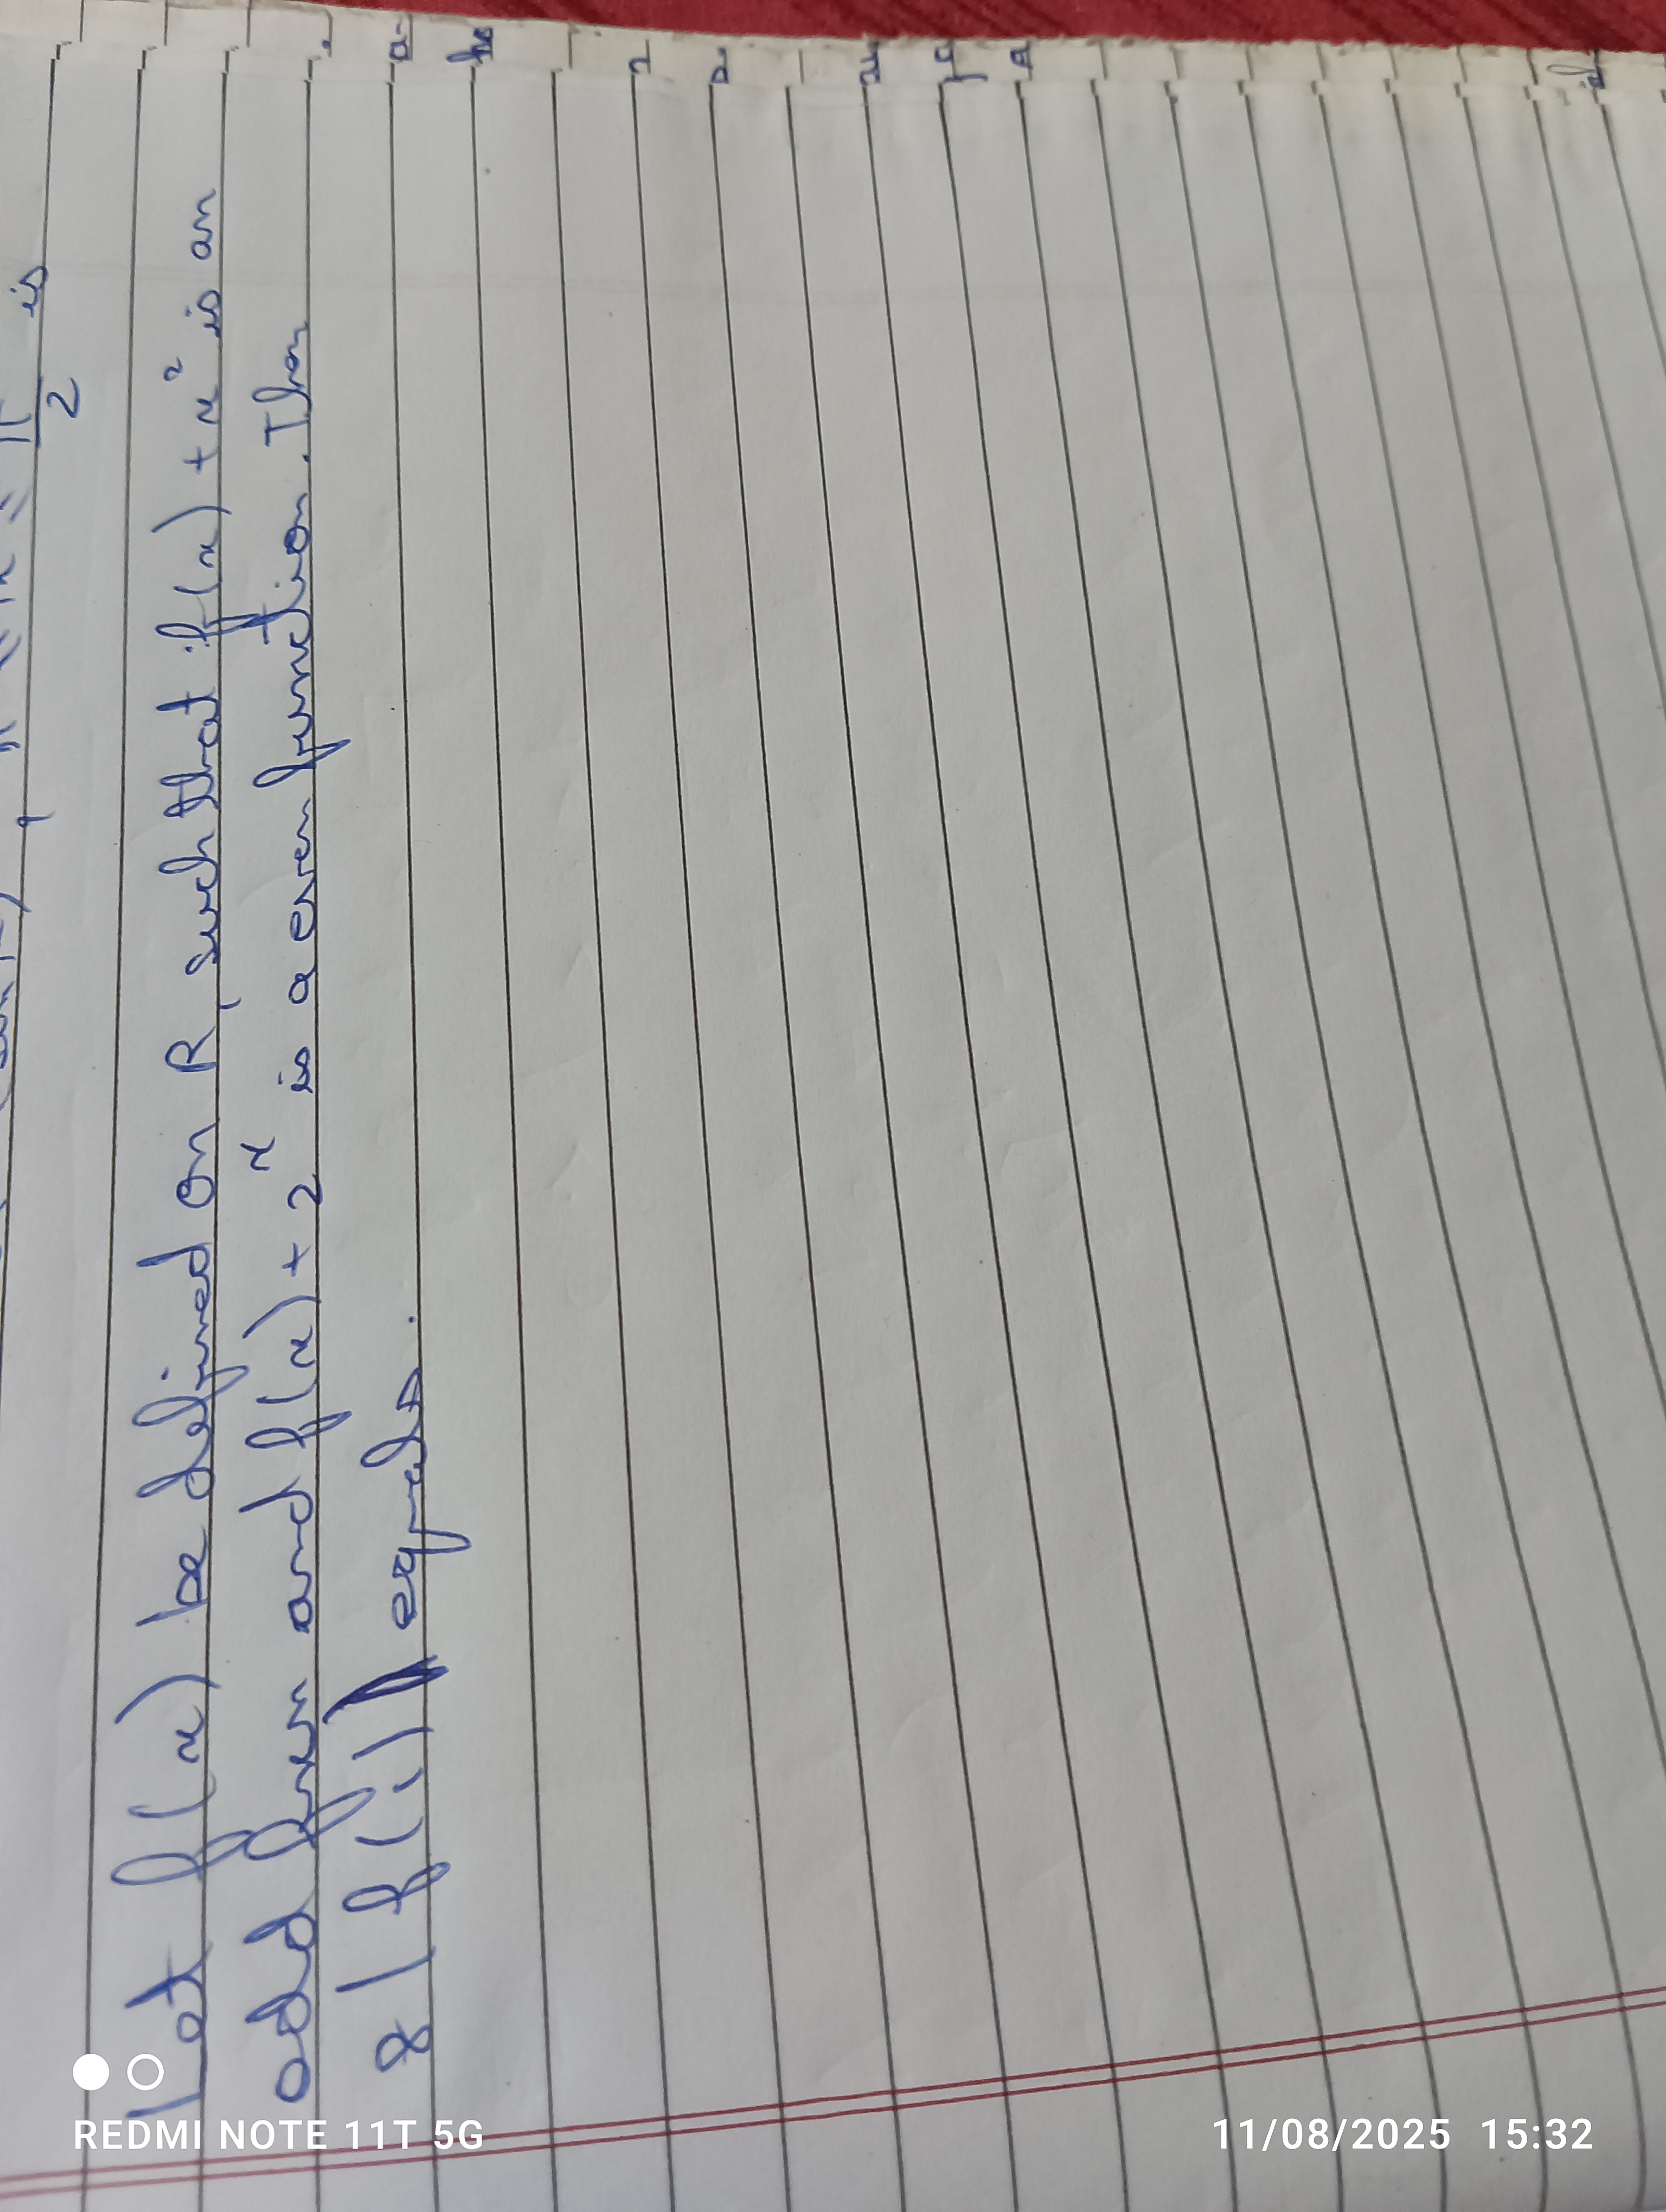 π/2 is
Let f(x) be defined on R, such that f(x) + x² is an
odd funn and f(x) + 2ˣ is a even function. Then
8 |f(1)| equals.
REDMI NOTE 11T 5G
11/08/2025 15:32